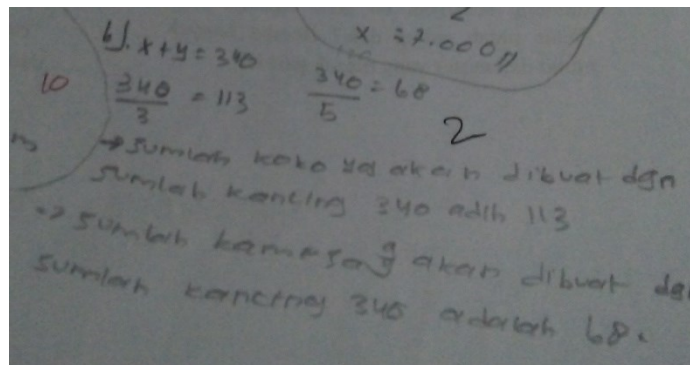 2
x = 7.000,,
b). x + y = 340
10
340/3 = 113 340/5 = 68
2
→ Jumlah koko yg akan dibuat dgn
Jumlah kancing 340 adlh 113
→ Jumlah kemeja yg akan dibuat dgn
Jumlah kancing 340 adalah 68.